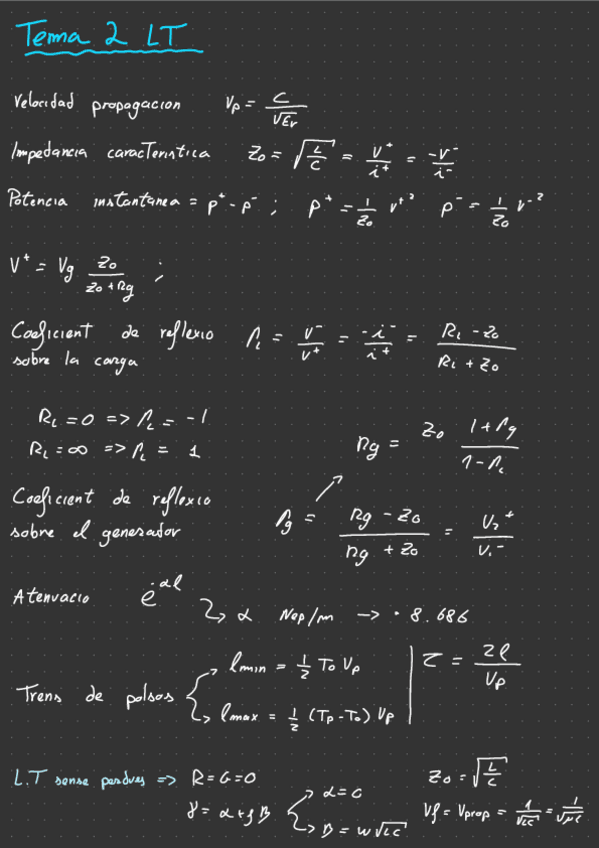 Tema 2 LT
Velocidad propagacion Vp = C/√Er
Impedancia caracteristica Zo = √(L/C) = V⁺/i⁺ = -V⁻/i⁻
Potencia instantanea = P⁺ - P⁻ ; P⁺ = 1/Zo V⁺² P⁻ = 1/Zo V⁻²
V⁺ = Vg Zo/(Zo + Rg) ;
Coeficient de reflexio ρL = V⁻/V⁺ = -i⁻/i⁺ = (RL - Zo)/(RL + Zo)
sobre la carga
RL = 0 => ρL = -1
RL = ∞ => ρL = 1
Rg = Zo (1 + ρg)/(1 - ρL)
Coeficient de reflexio
sobre el generador
ρg = (Rg - Zo)/(Rg + Zo) = V₂⁺/V₁⁻
Atenuacio e^(-αl)
α Nep/m -> · 8.686
Trens de polsos
lmin = 1/2 To Vp
lmax = 1/2 (Tp - To) Vp
τ = 2l/Vp
L.T sense perdues => R = G = 0
γ = α + jB
α = 0
B = w√LC
Zo = √(L/C)
Vf = Vprop = 1/√LC = 1/√με